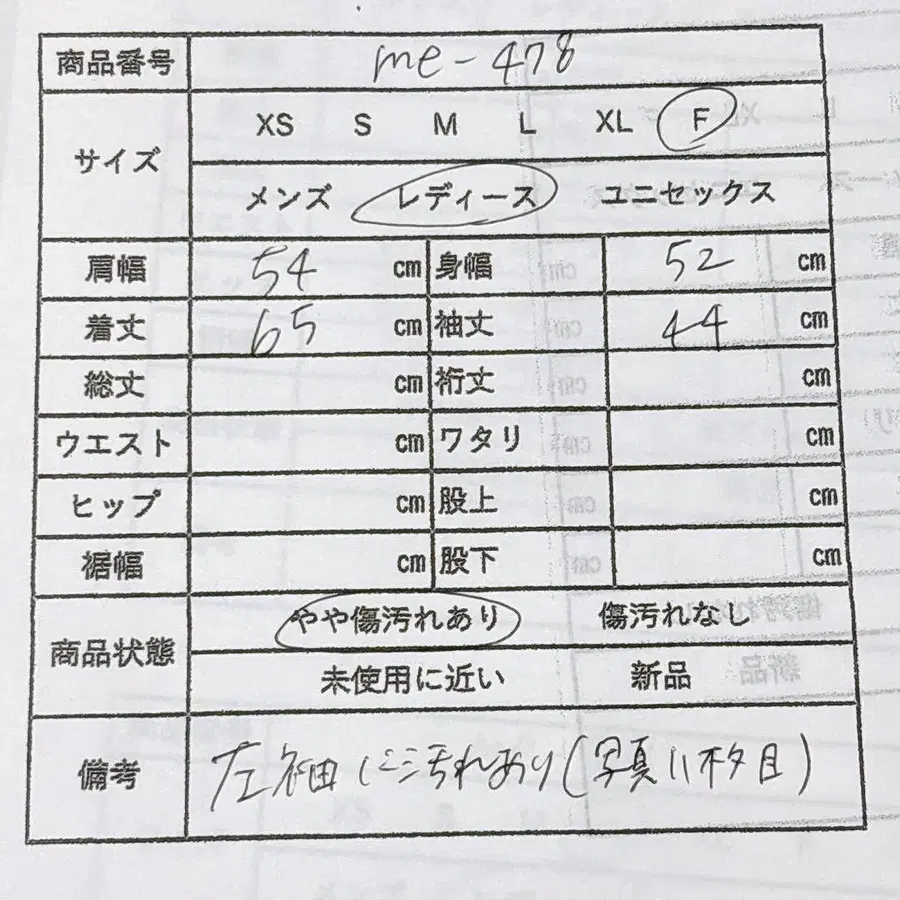 商品番号 me-478
サイズ XS S M L XL F
メンズ レディース ユニセックス
肩幅 54 cm 身幅 52 cm
着丈 65 cm 袖丈 44 cm
総丈 cm 裄丈 cm
ウエスト cm ワタリ cm
ヒップ cm 股上 cm
裾幅 cm 股下 cm
商品状態 やや傷汚れあり 傷汚れなし
未使用に近い 新品
備考 左袖に汚れあり(写真11枚目)